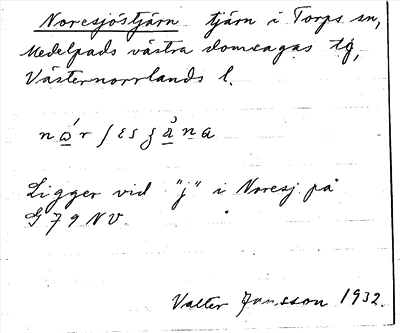 Noresjöstjärn tjärn i Torps sn,
Medelpads västra domsagas tg,
Västernorrlands l.
Ligger vid "j" i Noresj på
G 79 NV.
Valter Jansson 1932.